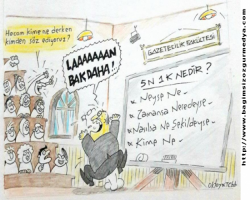 Hocam kime ne derken
kimden söz ediyoruz?
LAAAAAAN
BAK DAHA!
GAZETECİLİK FAKÜLTESİ
5N 1K NEDİR?
* Neyse Ne -
* Zamana Neredeyse -
* Nasılsa Ne Şekildeyse -
* Kime Ne -
http://www.bagimsizcozgurmedya.com